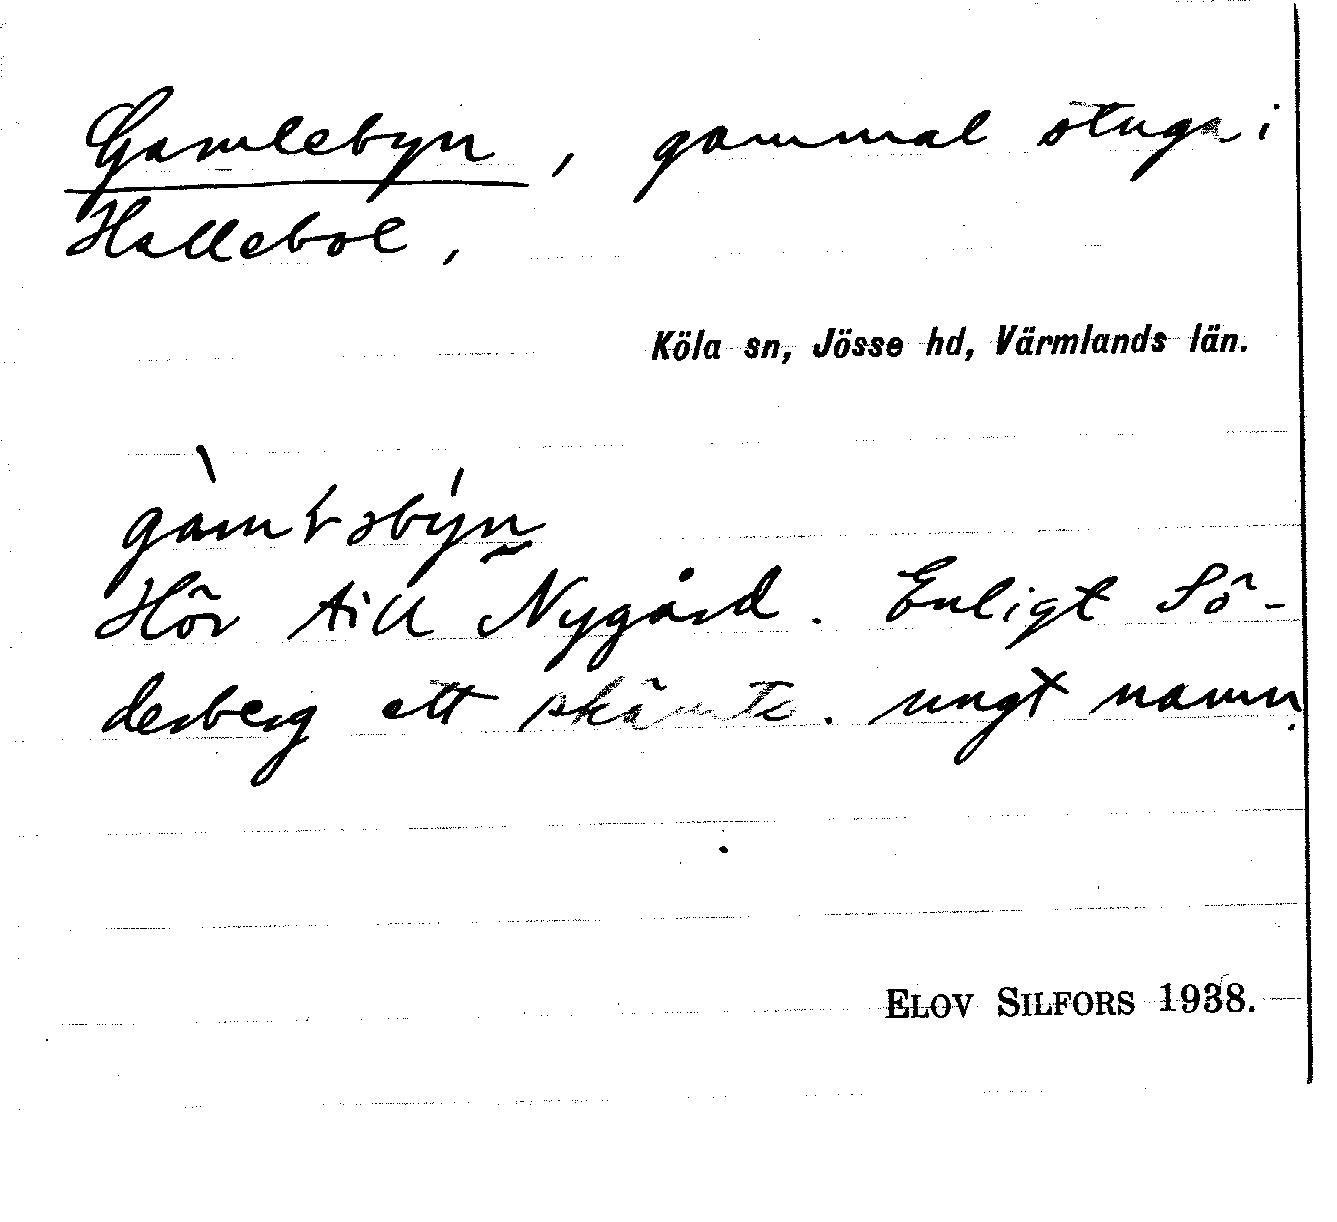 Gamlebyn, gammal stuga i
Hallebol,
Köla sn, Jösse hd, Värmlands län.
Hör till Nygård. Enligt Sö-
derberg ett skämts. ungt namn.
ELOV SILFORS 1938.